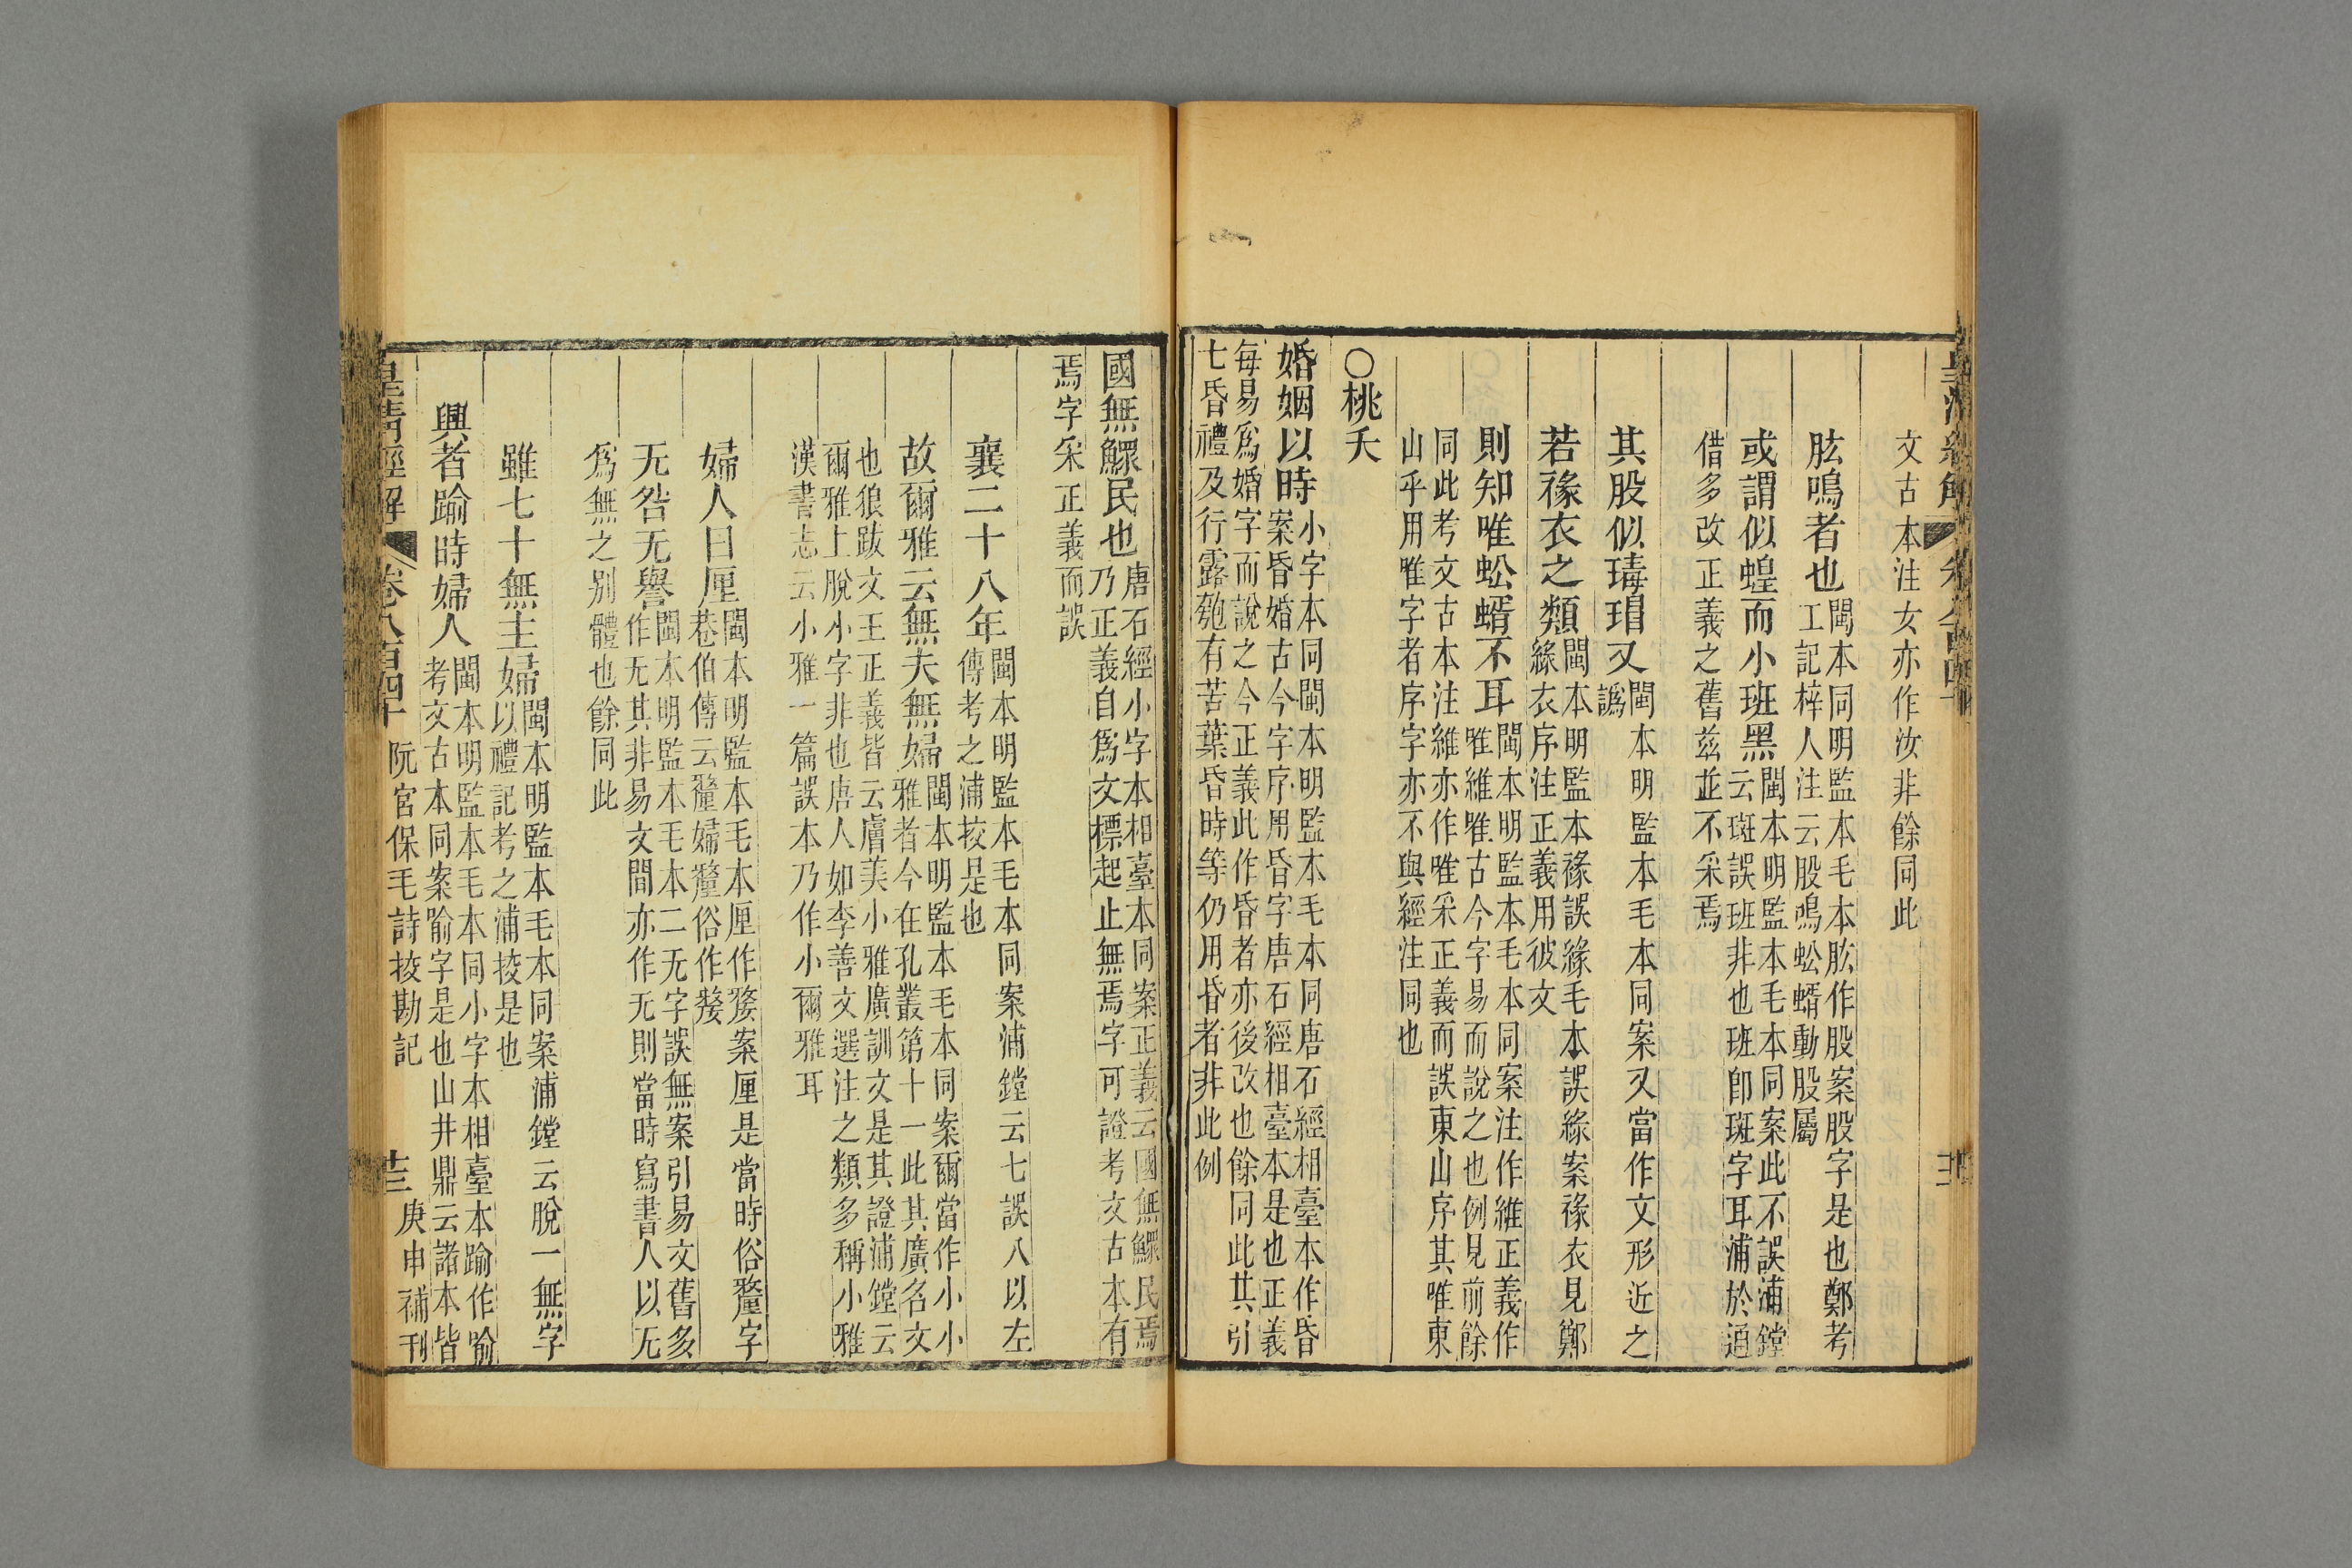 皇清經解 卷八百四十
文古本注女亦作汝非餘同此
肱鳴者也閩本同明監本毛本肱作股案股字是也鄭考
工記梓人注云股鳴蚣蝑動股屬
或謂似蝗而小班黑閩本明監本毛本同案此不誤浦鏜
云斑誤班非也班卽斑字耳浦於通
借多改正義之舊茲並不采焉
其股似瑇瑁又閩本明監本毛本同案又當作文形近之
譌
若祿衣之類閩本明監本祿誤緣毛本誤綠案祿衣見鄭
綠衣序注正義用彼文
則知唯蚣蝑不耳閩本明監本毛本同案注作維正義作
唯維唯古今字易而說之也例見前餘
同此考文古本注維亦作唯采正義而誤東山序其唯東
山乎用唯字者序字亦不與經注同也
○桃夭
婚姻以時小字本同閩本明監本毛本同唐石經相臺本作昏
案昏婚古今字序用昏字唐石經相臺本是也正義
每易爲婚字而說之今正義此作昏者亦後改也餘同此其引
七昏禮及行露匏有苦葉昏時等仍用昏者非此例
國無鰥民也唐石經小字本相臺本同案正義云國無鰥民焉
乃正義自爲文標起止無焉字可證考文古本有
焉字采正義而誤
襄二十八年閩本明監本毛本同案浦鏜云七誤八以左
傳考之浦挍是也
故爾雅云無夫無婦閩本明監本毛本同案爾當作小小
雅者今在孔叢第十一此其廣名文
也狼跋文王正義皆云膚美小雅廣訓文是其證浦鏜云
爾雅上脫小字非也唐人如李善文選注之類多稱小雅
漢書志云小雅一篇誤本乃作小爾雅耳
婦人曰厘閩本明監本毛本厘作嫠案厘是當時俗釐字
巷伯傳云釐婦釐俗作嫠
无咎无譽閩本明監本毛本二无字誤無案引易文舊多
作无其非易文間亦作无則當時寫書人以无
爲無之別體也餘同此
雖七十無主婦閩本明監本毛本同案浦鏜云脫一無字
以禮記考之浦挍是也
興者踰時婦人閩本明監本毛本同小字本相臺本踰作喻
考文古本同案喻字是也山井鼎云諸本皆
皇清經解 卷八百四十 阮宮保毛詩挍勘記 十三 庚申補刊